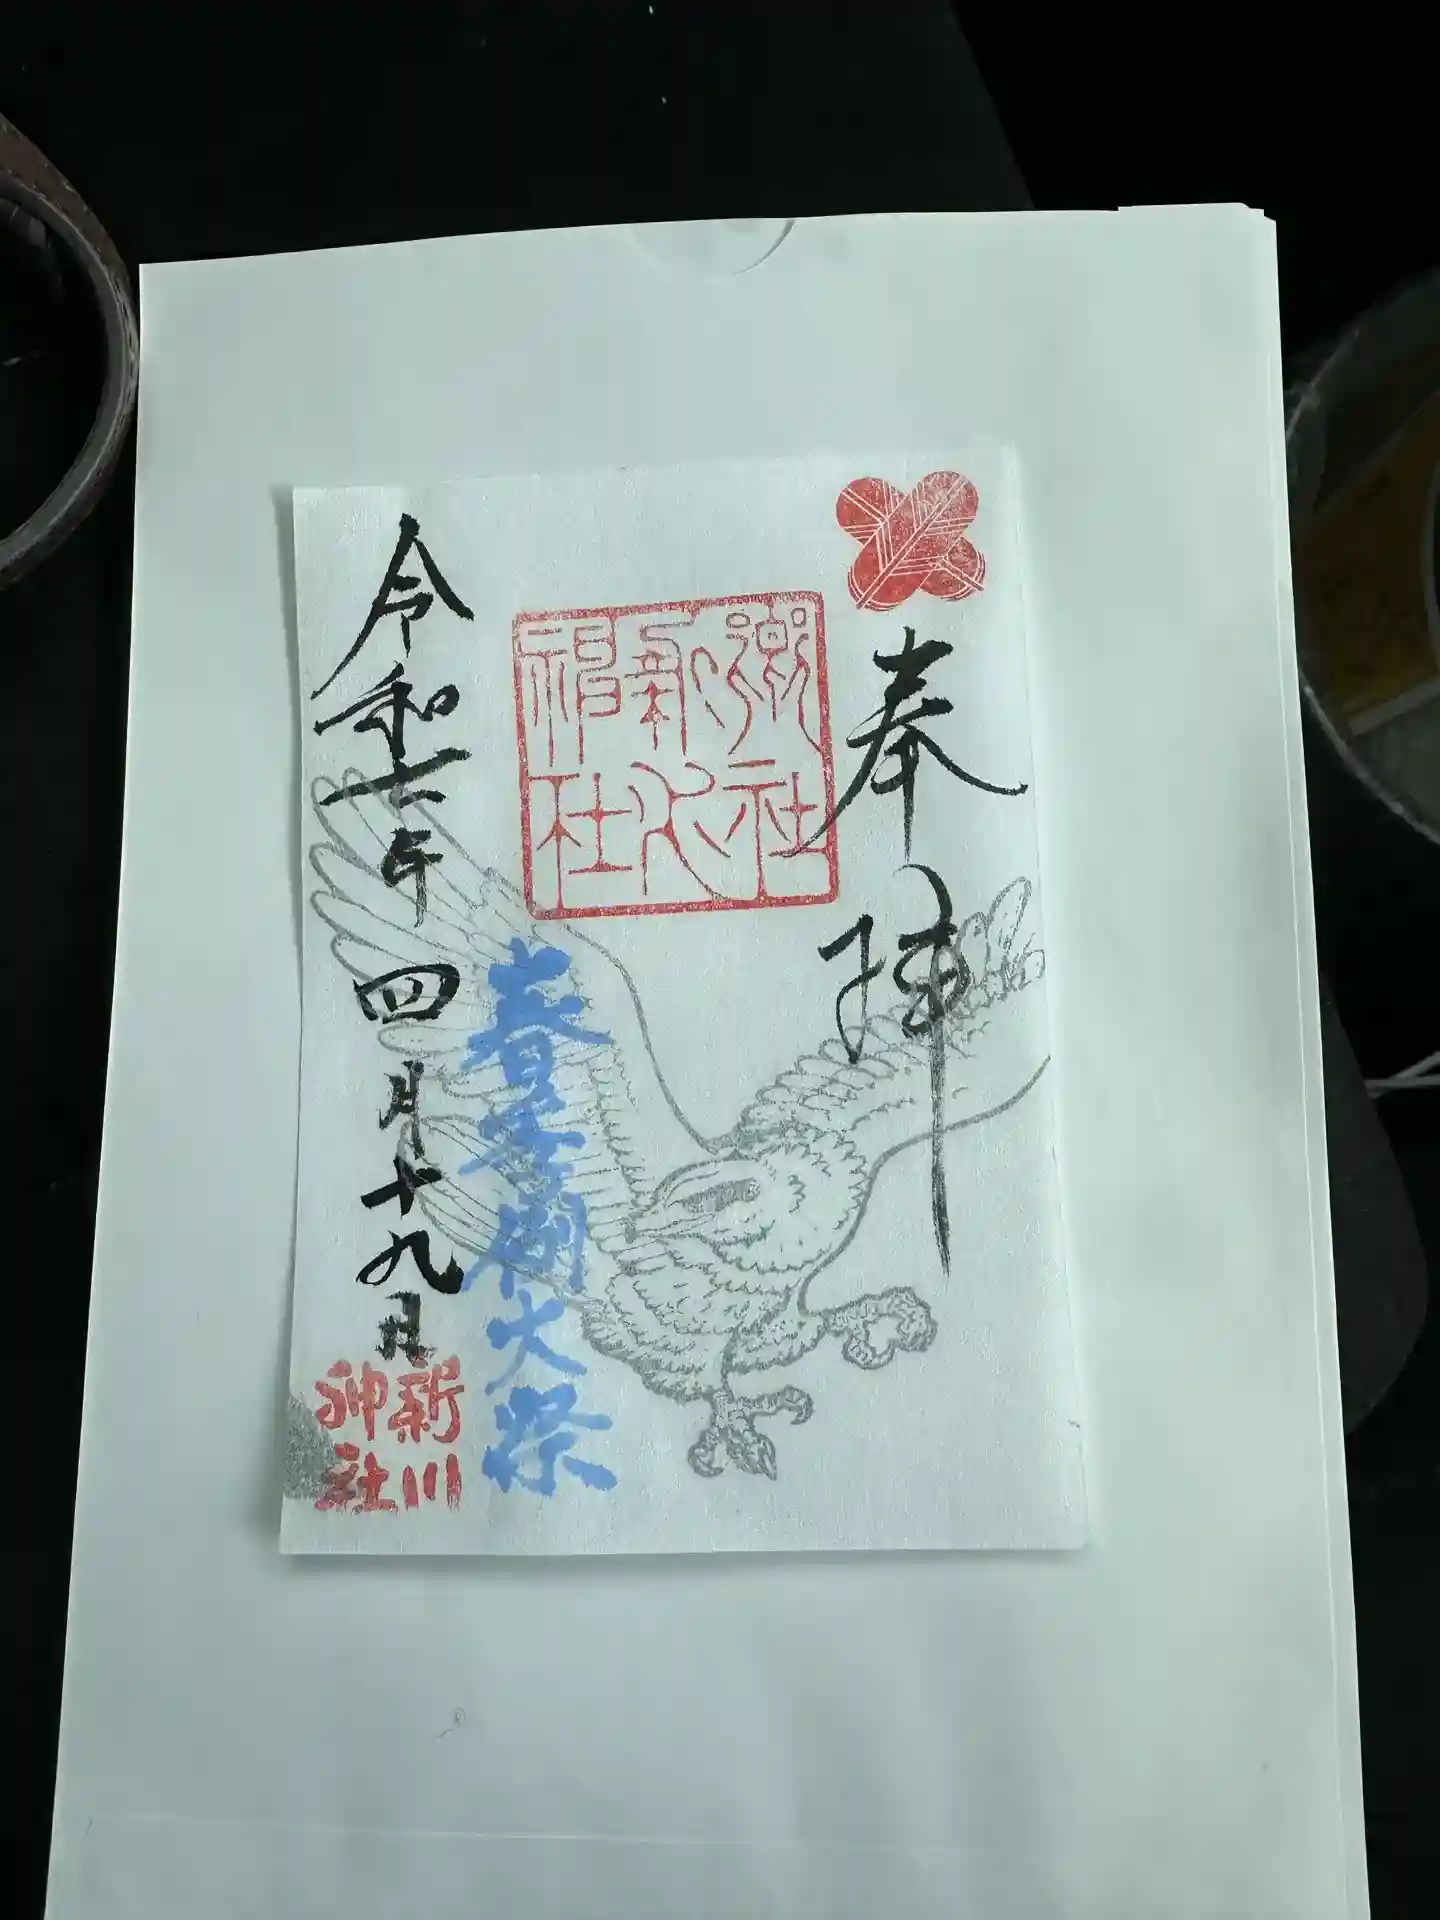 奉拝
郷社
新川
神社
春季例大祭
令和七年四月十九日
新川
神社